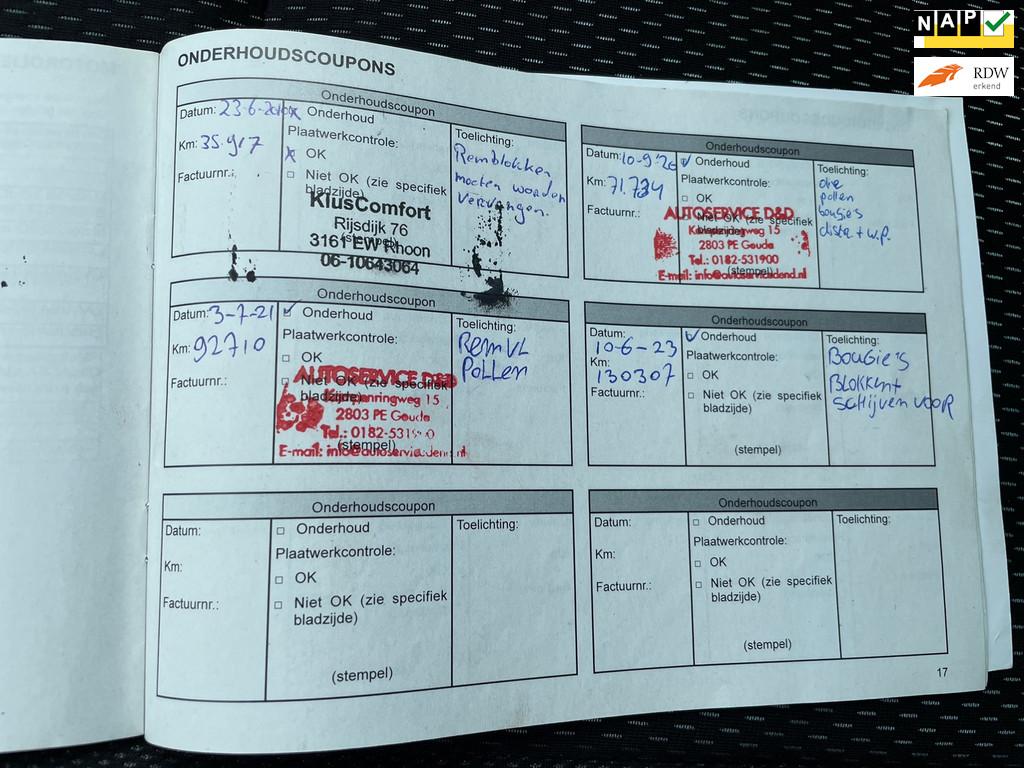 NAP
RDW
erkend
ONDERHOUDSCOUPONS
Onderhoudscoupon
Datum: 23-6-20
Km: 35.917
Factuurnr.:
Onderhoud
Plaatwerkcontrole:
OK
Niet OK (zie specifiek
bladzijde)
KlusComfort
Rijsdijk 76
3161 EW Rhoon
06-10643064
Toelichting:
Remblokken
moeten worden
vervangen.
Onderhoudscoupon
Datum: 10-9-'20
Km: 71.734
Factuurnr.:
Onderhoud
Plaatwerkcontrole:
OK
Niet OK (zie specifiek
AUTOSERVICE D&D
2803 PE Gouda
Tel.: 0182-531900
(stempel)
E-mail: info@autoservicedend.nl
Toelichting:
olie
pollen
bougie's
dista + w.p.
Onderhoudscoupon
Datum: 3-7-21
Km: 92710
Factuurnr.:
Onderhoud
Plaatwerkcontrole:
OK
Niet OK (zie specifiek
bladzijde)
AUTOSERVICE D&D
15
2803 PE Gouda
Tel.: 0182-531
(stempel)
E-mail:
Toelichting:
REMVL
POLLEN
Onderhoudscoupon
Datum:
10-6-23
Km:
130307
Factuurnr.:
Onderhoud
Plaatwerkcontrole:
OK
Niet OK (zie specifiek
bladzijde)
(stempel)
Toelichting:
BOUGIE'S
BLOKKEN+
SCHIJVEN VOOR
Onderhoudscoupon
Datum:
Km:
Factuurnr.:
Onderhoud
Plaatwerkcontrole:
OK
Niet OK (zie specifiek
bladzijde)
(stempel)
Toelichting:
Onderhoudscoupon
Datum:
Km:
Factuurnr.:
Onderhoud
Plaatwerkcontrole:
OK
Niet OK (zie specifiek
bladzijde)
(stempel)
Toelichting:
17